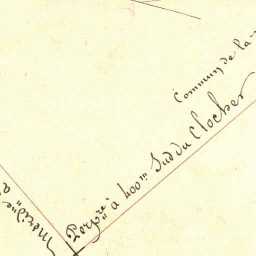 Commune de la
Perp.re à 400m Sud du Clocher
Mérid.ne à